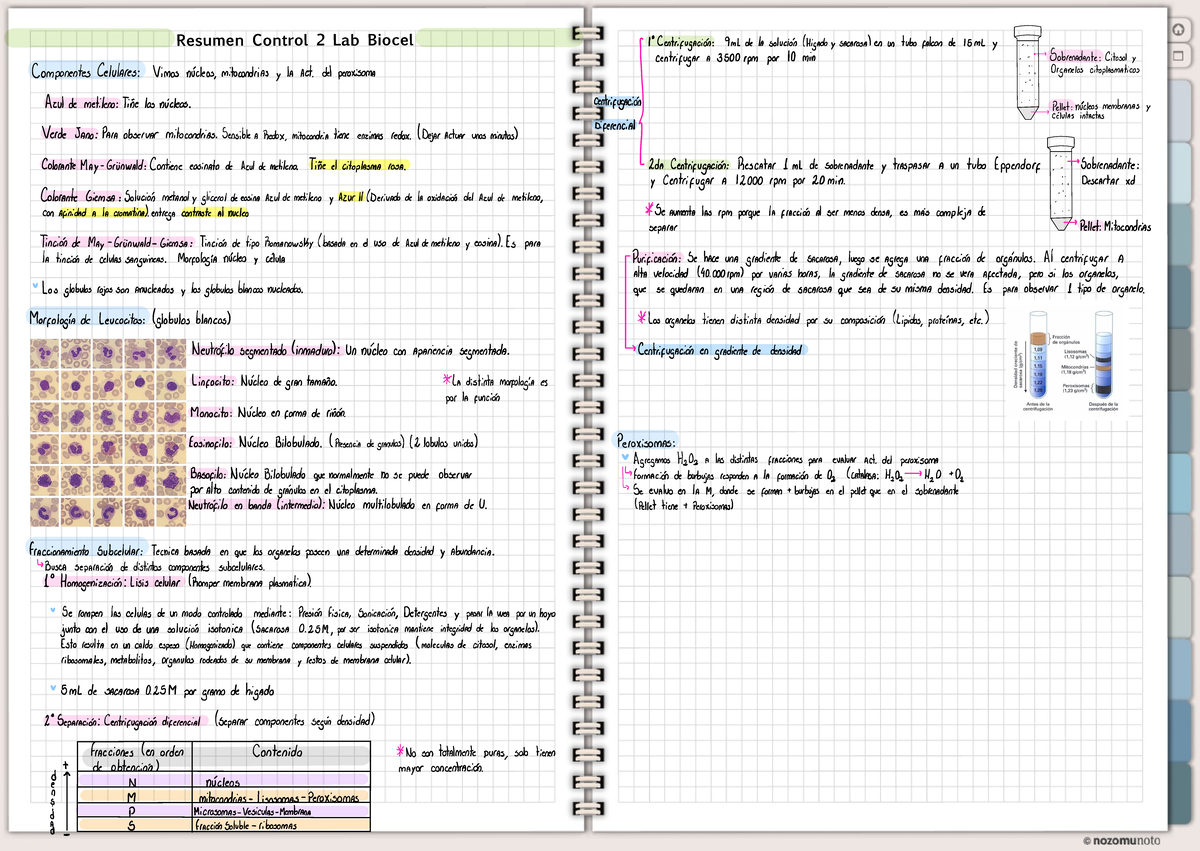 Resumen Control 2 Lab Biocel
Componentes Celulares: Vimos núcleos, mitocondrias y la Act. del peroxisoma
Azul de metileno: Tiñe los núcleos.
Verde Jano: Para observar mitocondrias. Sensible a Redox, mitocondria tiene enzimas redox. (Dejar Actuar unos minutos)
Colorante May-Grünwald: Contiene eosinato de Azul de metileno. Tiñe el citoplasma rosa.
Colorante Giemsa: Solución metanol y glicerol de eosina Azul de metileno y Azur II (Derivado de la oxidación del Azul de metileno,
con Afinidad a la cromatina). entrega contraste al nucleo
Tinción de May-Grünwald-Giemsa: Tinción de tipo Romanowsky (basada en el uso de Azul de metileno y eosina). Es para
la tinción de celulas sanguineas. Morfología núcleo y célula
Los glóbulos rojos son Anucleados y los glóbulos blancos nucleados.
Morfología de Leucocitos: (globulos blancos)
Neutrófilo segmentado (inmaduro): Un núcleo con Apariencia segmentada.
Linfocito: Núcleo de gran tamaño.
*La distinta morfología es
por la función
Monocito: Núcleo en forma de riñón.
Eosinofilo: Núcleo Bilobulado. (Presencia de granulos) (2 lobulos unidos)
Basofilo: Núcleo Bilobulado que normalmente no se puede observar
por alto contenido de gránulos en el citoplasma.
Neutrófilo en banda (intermedio): Núcleo multilobulado en forma de U.
Fraccionamiento Subcelular: Tecnica basada en que los organelos poseen una determinada densidad y Abundancia.
Busca separación de distintos componentes subcelulares.
1° Homogenización: Lisis celular (Romper membrana plasmatica)
Se rompen las celulas de un modo controlado mediante: Presión física, Sonicación, Detergentes y pasar la wea por un hoyo
junto con el uso de una solución isotonica (Sacarosa 0.25M, por ser isotonica mantiene integridad de los organelos).
Esto resulta en un caldo espeso (Homogenizado) que contiene componentes celulares suspendidos (moleculas de citosol, enzimas
ribosomales, metabolitos, organulos rodeados de su membrana y restos de membrana celular).
5mL de sacarosa 0.25M por gramo de higado
2° Separación: Centrifugación diferencial (Separar componentes según densidad)
Fracciones (en orden
de obtención)
Contenido
N núcleos
M mitocondrias-Lisosomas-Peroxisomas
P Microsomas-Vesiculas-Membrana
S Fracción Soluble-ribosomas
+
densidad
-
*No son totalmente puras, solo tienen
mayor concentración.
Centrifugación
Diferencial
1° Centrifugación: 9mL de la solución (Higado y sacarosa) en un tubo falcon de 15mL y
centrifugar a 3500 rpm por 10 min
Sobrenadante: Citosol y
Organelos citoplasmaticos
Pellet: núcleos membranas y
células intactas
2da Centrifugación: Rescatar 1mL de sobrenadante y traspasar a un tubo Eppendorf
y Centrifugar a 12000 rpm por 20min.
Sobrenadante:
Descartar xd
Pellet: Mitocondrias
*Se aumenta las rpm porque la fracción al ser menos densa, es mas compleja de
separar
Purificación: Se hace una gradiente de sacarosa, luego se agrega una fracción de orgánulos. Al centrifugar a
Alta velocidad (40.000rpm) por varias horas, la gradiente de sacarosa no se vera afectada, pero si los organelos,
que se quedaran en una región de sacarosa que sea de su misma densidad. Es para observar 1 tipo de organelo.
*Los organelos tienen distinta densidad por su composición (Lípidos, proteínas, etc.)
Centrifugación en gradiente de densidad
Densidad creciente de
sacarosa (g/cm³)
Fracción
de orgánulos
1,09
1,11
1,15
1,19
1,22
1,25
Lisosomas
(1,12 g/cm³)
Mitocondrias
(1,18 g/cm³)
Peroxisomas
(1,23 g/cm³)
Antes de la
centrifugación
Después de la
centrifugación
Peroxisomas:
Agregamos H₂O₂ a las distintas fracciones para evaluar Act. del peroxisoma
Formación de burbujas responden a la formación de O₂ (catalasa: H₂O₂ → H₂O + O₂
Se evaluo en la M, donde se forman + burbujas en el pellet que en el sobrenadante
(Pellet tiene + Peroxisomas)
© nozomunoto